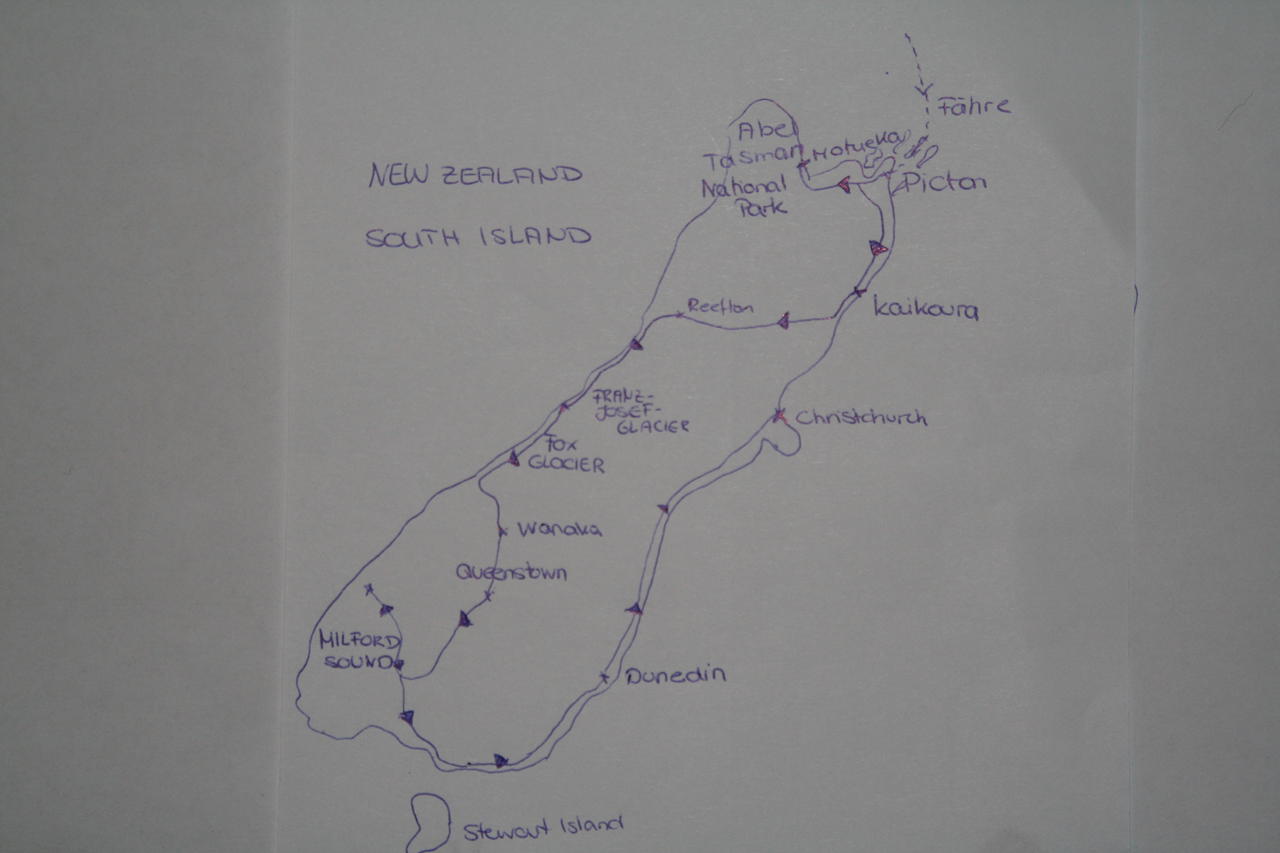 Fähre
Abel
Tasman
National
Park
Motueka
Picton
NEW ZEALAND
SOUTH ISLAND
Reefton
Kaikoura
FRANZ-
JOSEF-
GLACIER
Christchurch
FOX
GLOCIER
Wanaka
Queenstown
MILFORD
SOUND
Dunedin
Stewart Island